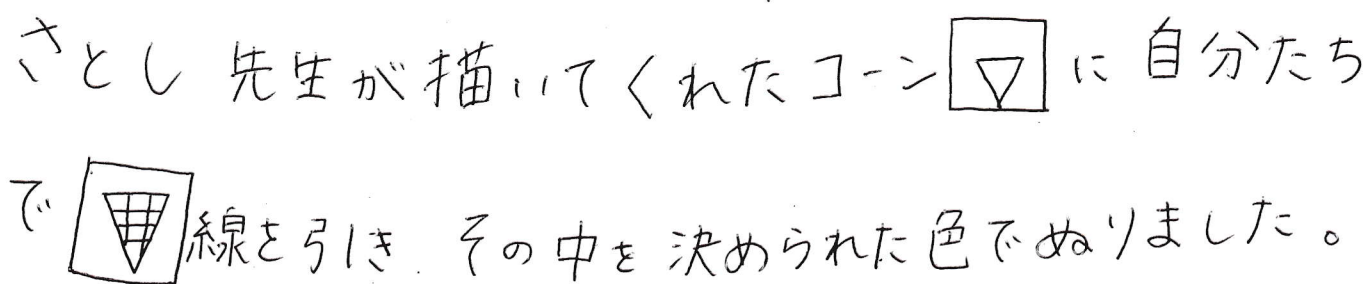 さとし先生が描いてくれたコーンに自分たち
で線を引き、その中を決められた色でぬりました。